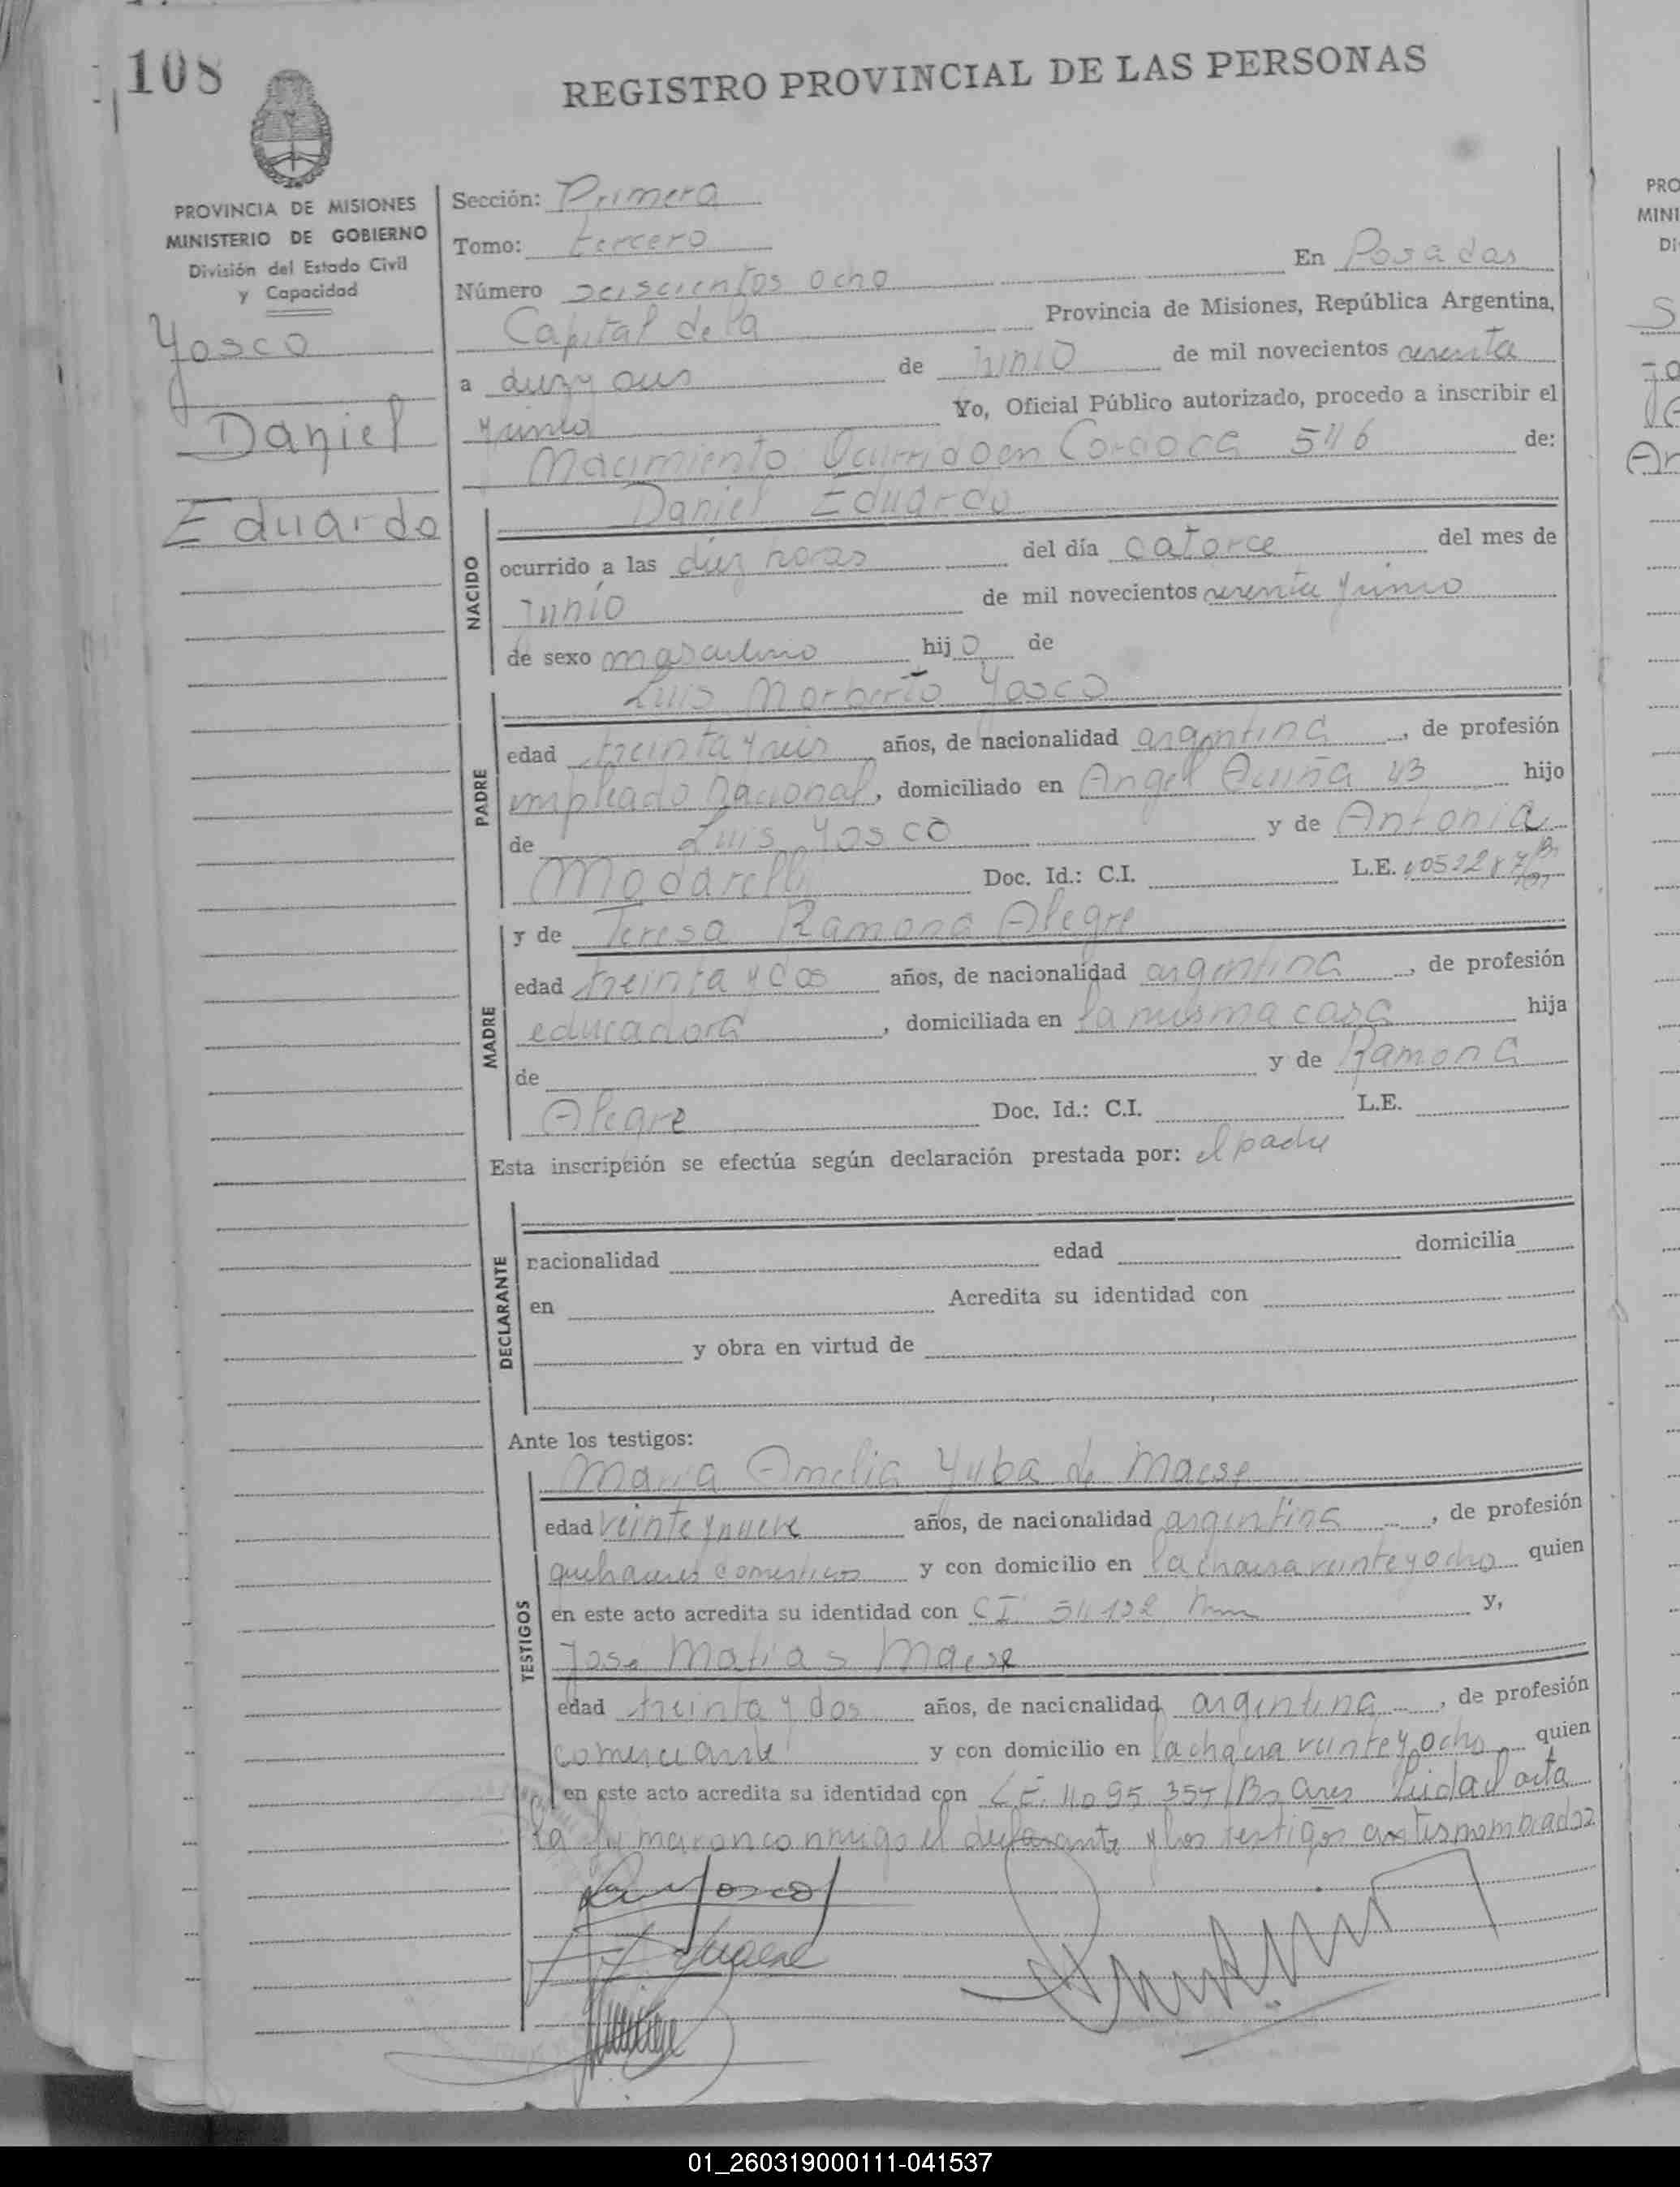 108
REGISTRO PROVINCIAL DE LAS PERSONAS
PROVINCIA DE MISIONES
MINISTERIO DE GOBIERNO
División del Estado Civil
y Capacidad
Yosco
Daniel
Eduardo
Sección: Primera
Tomo: tercero
Número seiscientos ocho En Posadas
Capital de la Provincia de Misiones, República Argentina,
a de Junio de mil novecientos sesenta
Yo, Oficial Público autorizado, procedo a inscribir el
Nacimiento Ocurrido en Cordoba 546 de:
NACIDO
Daniel Eduardo
ocurrido a las diez horas del día catorce del mes de
Junio de mil novecientos sesenta y
de sexo masculino hijo de
PADRE
Luis Norberto Yosco
edad treinta y seis años, de nacionalidad argentina, de profesión
empleado nacional, domiciliado en Angel Acuña 43 hijo
de Luis Yosco y de Antonia
Modarelli Doc. Id.: C.I. L.E.
MADRE
y de Teresa Ramona Alegre
edad treinta y dos años, de nacionalidad argentina, de profesión
educadora, domiciliada en la misma casa hija
de y de Ramona
Alegre Doc. Id.: C.I. L.E.
Esta inscripción se efectúa según declaración prestada por: el padre
DECLARANTE
nacionalidad edad domicilia
en Acredita su identidad con
y obra en virtud de
Ante los testigos:
TESTIGOS
Maria Amelia Yuba de Maese
edad veinte y nueve años, de nacionalidad argentina, de profesión
quehaceres domesticos y con domicilio en la chacra veinte y ocho quien
en este acto acredita su identidad con CI. y,
José Matias Maese
edad treinta y dos años, de nacionalidad argentina, de profesión
comerciante y con domicilio en la chacra veinte y ocho quien
en este acto acredita su identidad con L.E. 4095.357/Bs Ares Leida el acta
la firmaron conmigo el declarante y los testigos antes nombrados
01_260319000111-041537